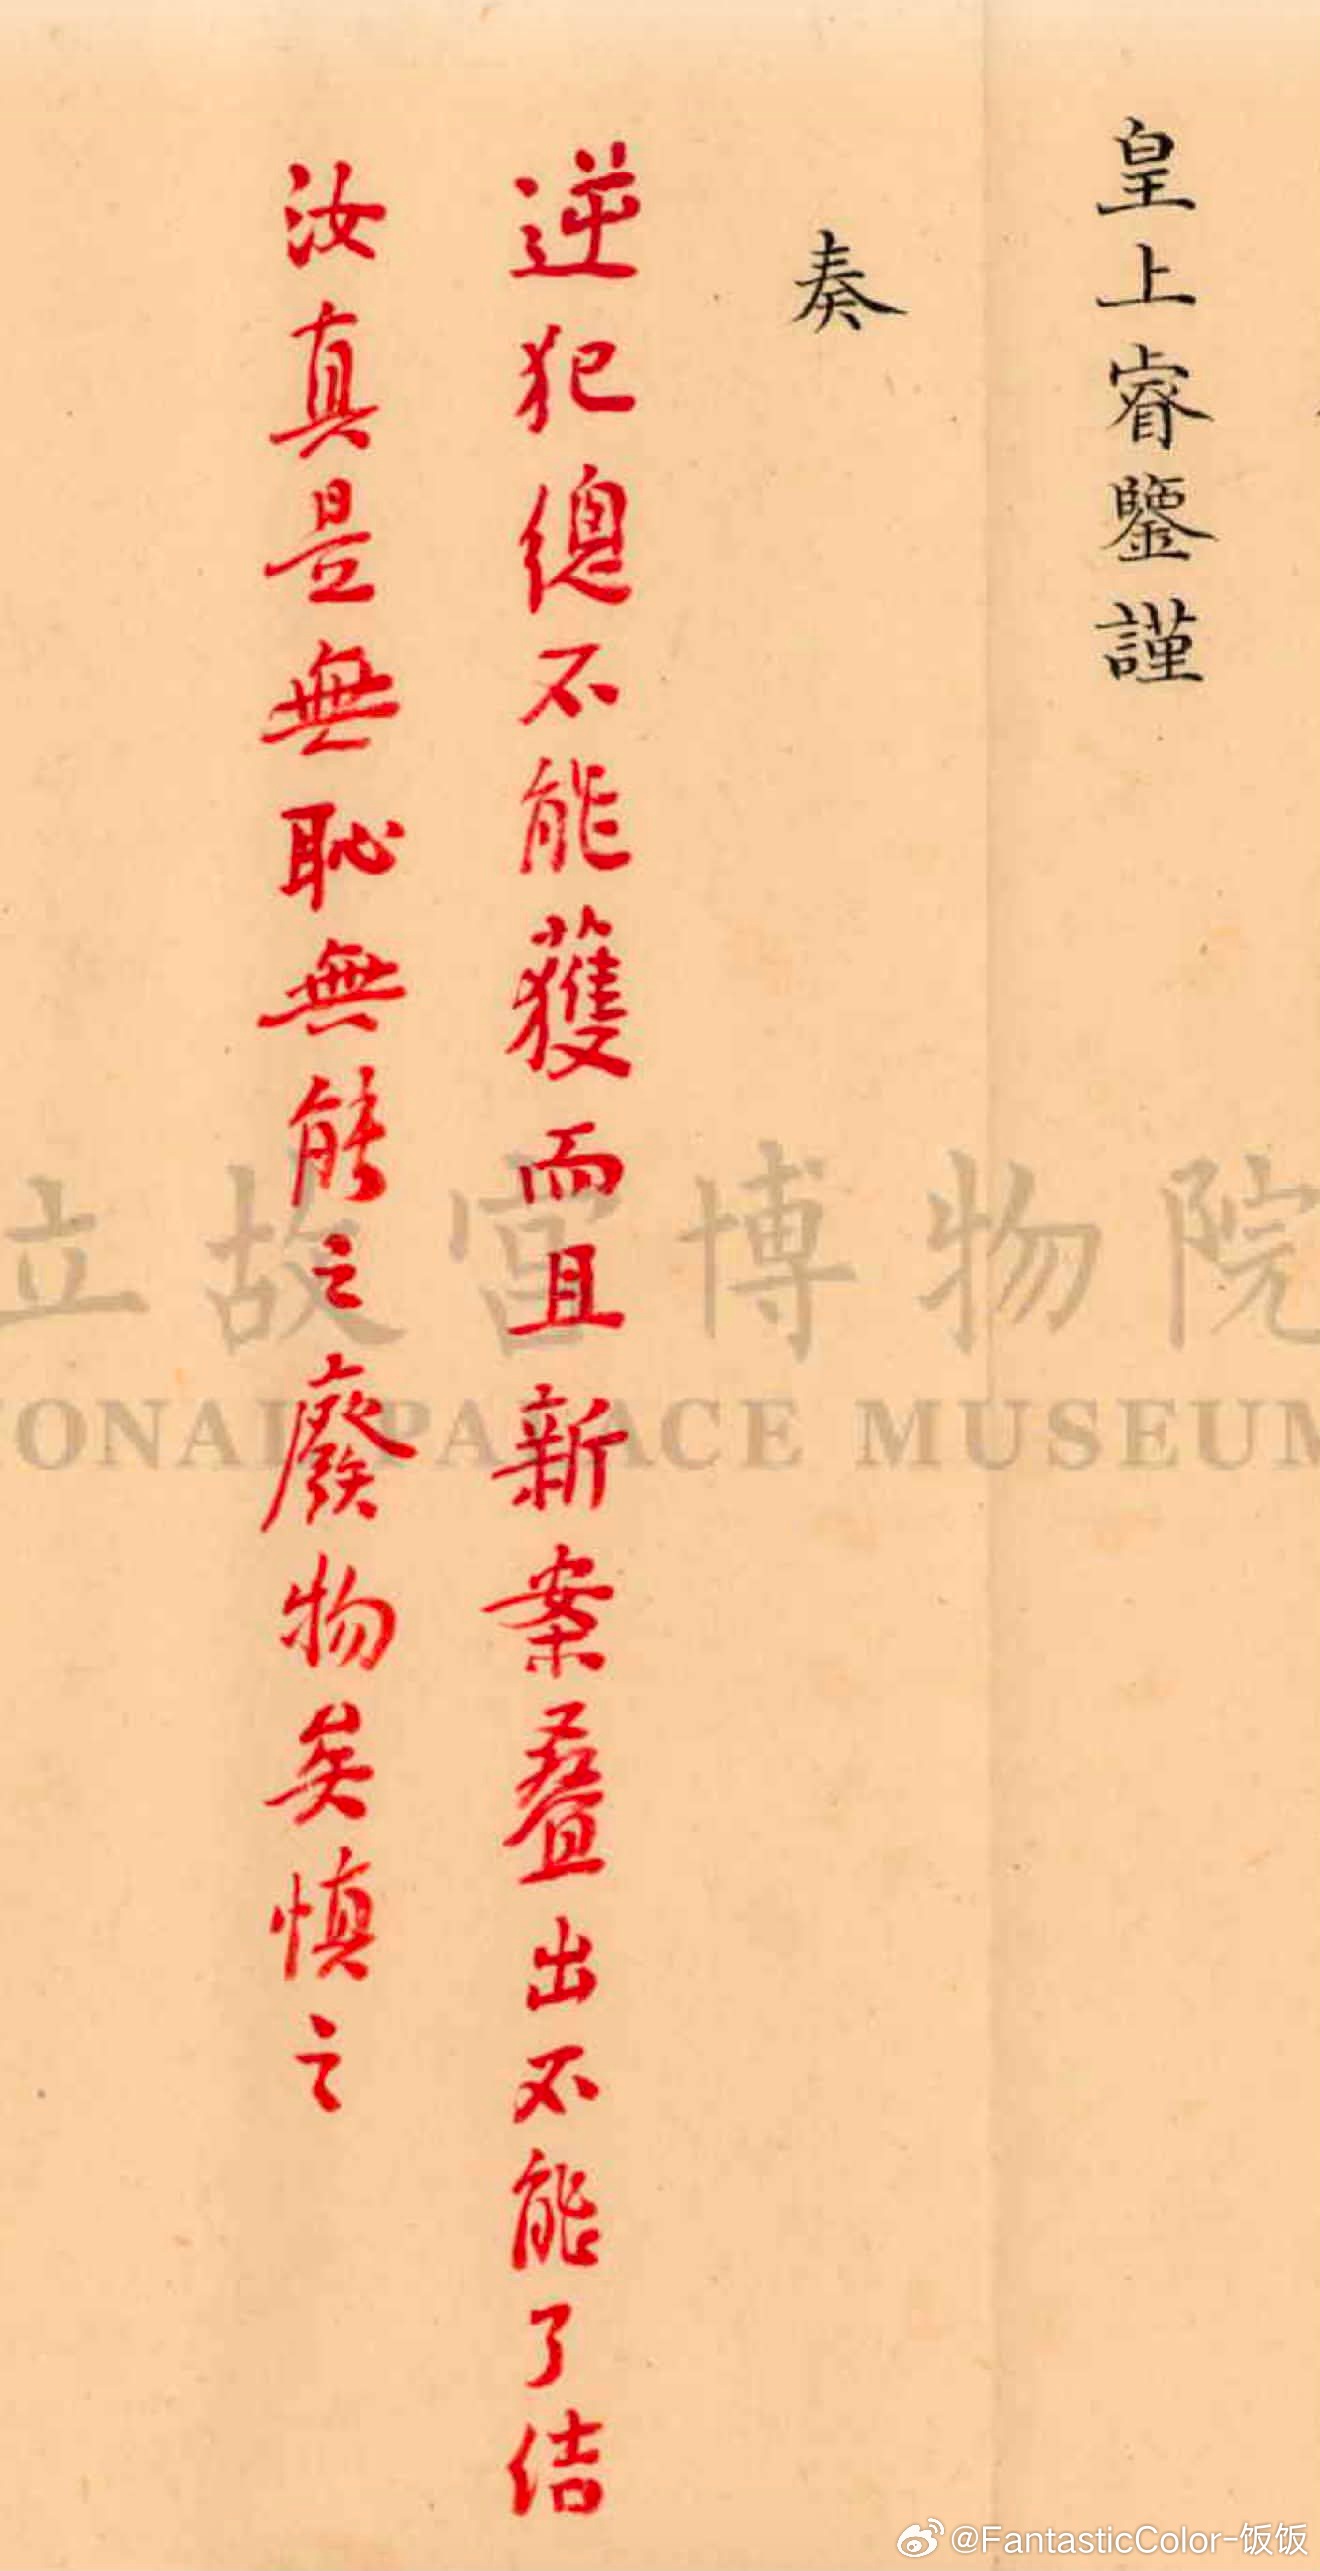 皇上睿鑒謹
奏
逆犯總不能獲而且新案疊出不能了结
汝真是無恥無能之廢物矣慎之
立故宫博物院
IONAL PALACE MUSEUM
@FantasticColor-饭饭